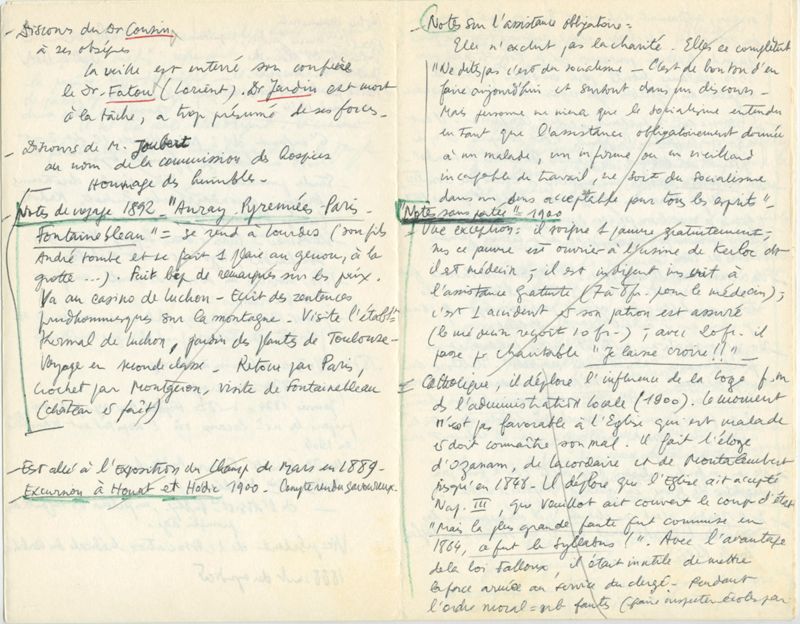 - Discours du Dr Cousin
à ses obsèques
la veille est enterré son confrère
le Dr. Fatou (Lorient). Dr Jardin est mort
à la tâche, a trop présumé de ses forces -
- Discours de M. Joubert
au nom de la commission des hospices
Hommage des humbles -
- Notes de voyage 1892 - "Auray - Pyrennées - Paris -
Fontainebleau" = se rend à Lourdes (son fils
André tombe et se fait 1 plaie au genou, à la
grotte ...). Fait bcp de remarques sur les prix.
Va au casino de Luchon - Ecrit des sentences
prudhommesques sur la montagne - Visite l'établt
thermal de Luchon, jardin des plantes de Toulouse -
Voyage en seconde classe - Retour par Paris,
crochet par Montgeron, visite de Fontainebleau
(château et forêt)
- Est allé à l'Exposition du Champ de Mars en 1889 -
Excursion à Houat et Hœdic 1900 - Compte rendu savoureux -
- Notes sur l'assistance obligatoire =
Elle n'exclut pas la charité - Elles se complètent
"Ne dites pas c'est du socialisme - C'est de bon ton d'en
faire aujourd'hui et surtout dans un discours -
Mais personne ne niera que le socialisme entendu
en tant que l'assistance obligatoirement donnée
à un malade, un infirme ou un vieillard
incapable de travail, ne soit du socialisme
dans un sens acceptable pour tous les esprits" -
"Notes sans portée" 1900
- Une exception : il soigne 1 pauvre gratuitement -,
mais ce pauvre est ouvrier à l'usine de Kerloc dt
il est médecin -, il est indigent inscrit à
l'assistance gratuite (7 à 8 fr. pour le médecin) ;
c'est 1 accident et son patron est assuré
(le médecin reçoit 10 fr.) -, avec 20 fr. il
passe pr charitable "Je laisse croire !!" -
= Catholique, il déplore l'influence de la loge f.m
ds l'administration locale (1900). Le moment
n'est pas favorable à l'Eglise qui est malade
et doit connaître son mal. Il fait l'éloge
d'Ozanam, de Lacordaire et de Montalembert
jusqu'en 1848. Il déplore que l'Eglise ait accepté
Nap. III, que Veuillot ait couvert le coup d'état
"Mais la plus grande faute fut commise en
1864, ce fut le Syllabus !". Avec l'avantage
de la loi Falloux, il était inutile de mettre
la force armée au service du clergé - Pendant
l'ordre moral = nb fautes (faire inspecter écoles par